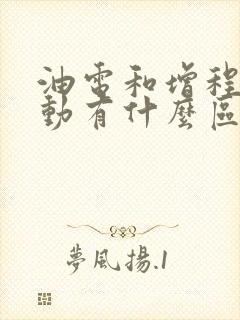 油電和增程
動有什麼區
夢風揚.1